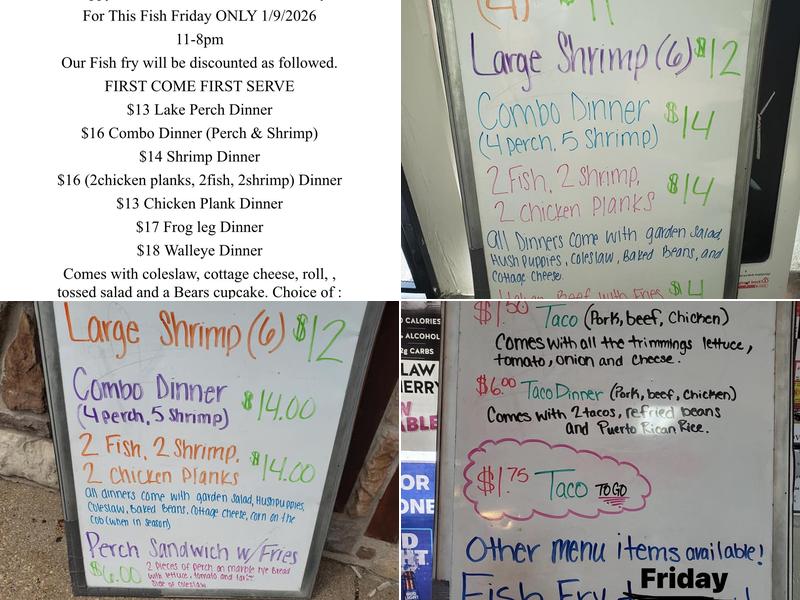 For This Fish Friday ONLY 1/9/2026
11-8pm
Our Fish fry will be discounted as followed.
FIRST COME FIRST SERVE
$13 Lake Perch Dinner
$16 Combo Dinner (Perch & Shrimp)
$14 Shrimp Dinner
$16 (2chicken planks, 2fish, 2shrimp) Dinner
$13 Chicken Plank Dinner
$17 Frog leg Dinner
$18 Walleye Dinner
Comes with coleslaw, cottage cheese, roll, ,
tossed salad and a Bears cupcake. Choice of :
(4) $11
Large Shrimp (6) $12
Combo Dinner $14
(4 perch, 5 Shrimp)
2 Fish, 2 Shrimp, $14
2 Chicken Planks
All Dinners come with garden Salad,
Hush Puppies, Coleslaw, Baked Beans, and
Cottage Cheese.
Italian Beef with Fries $4
Large Shrimp (6) $12
Combo Dinner $14.00
(4 perch, 5 Shrimp)
2 Fish, 2 Shrimp, $14.00
2 Chicken Planks
All dinners come with garden Salad, Hushpuppies,
Coleslaw, Baked Beans, Cottage Cheese, corn on the
Cob (when in season)
Perch Sandwich w/Fries
$6.00 2 pieces of perch on marble rye Bread
with lettuce, tomato and tart.
Side of Coleslaw
0 CALORIES
% ALCOHOL
2g CARBS
LAW
HERRY
ABLE
OR
ONE
D
HT.
BUD
LIGHT
$1.50 Taco (Pork, beef, Chicken)
Comes with all the trimmings lettuce,
tomato, onion and cheese.
$6.00 Taco Dinner (Pork, beef, Chicken)
Comes with 2 tacos, refried beans
and Puerto Rican Rice.
$1.75 Taco TO GO
Other menu items available!
Fish Fry Friday !